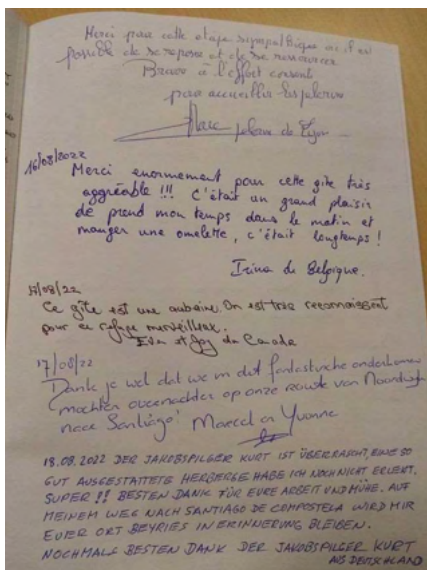 Merci pour cette étape sympathique où il est
possible de se reposer et de se ressourcer
Bravo à l'effort consent
pour accueillir les pèlerins
Marc pèlerin de Lyon
16/08/2022
Merci enormement pour cette gite très
aggréable !!! C'était un grand plaisir
de prend mon temps dans le matin et
manger une omelette, c'était longtemps !
Irina de Belgique.
17/08/22
Ce gîte est une aubaine. On est très reconnaissent
pour ce refuge merveilleux.
et Joy du Canada
17/08/22
Dank je wel dat we in dit fantastische onderkomen
mochten overnachten op onze route van Noordwijk
naar Santiago! Marcel en Yvonne
18.08.2022 DER JAKOBSPILGER KURT IST ÜBERRASCHT, EINE SO
GUT AUSGESTATTETE HERBERGE HABE ICH NOCH NICHT ERLEBT.
SUPER !! BESTEN DANK FÜR EURE ARBEIT UND MÜHE. AUF
MEINEM WEG NACH SANTIAGO DE COMPOSTELA WIRD MIR
EUER ORT BEYRIES IN ERINNERUNG BLEIBEN.
NOCHMALS BESTEN DANK DER JAKOBSPILGER KURT
AUS DEUTSCHLAND